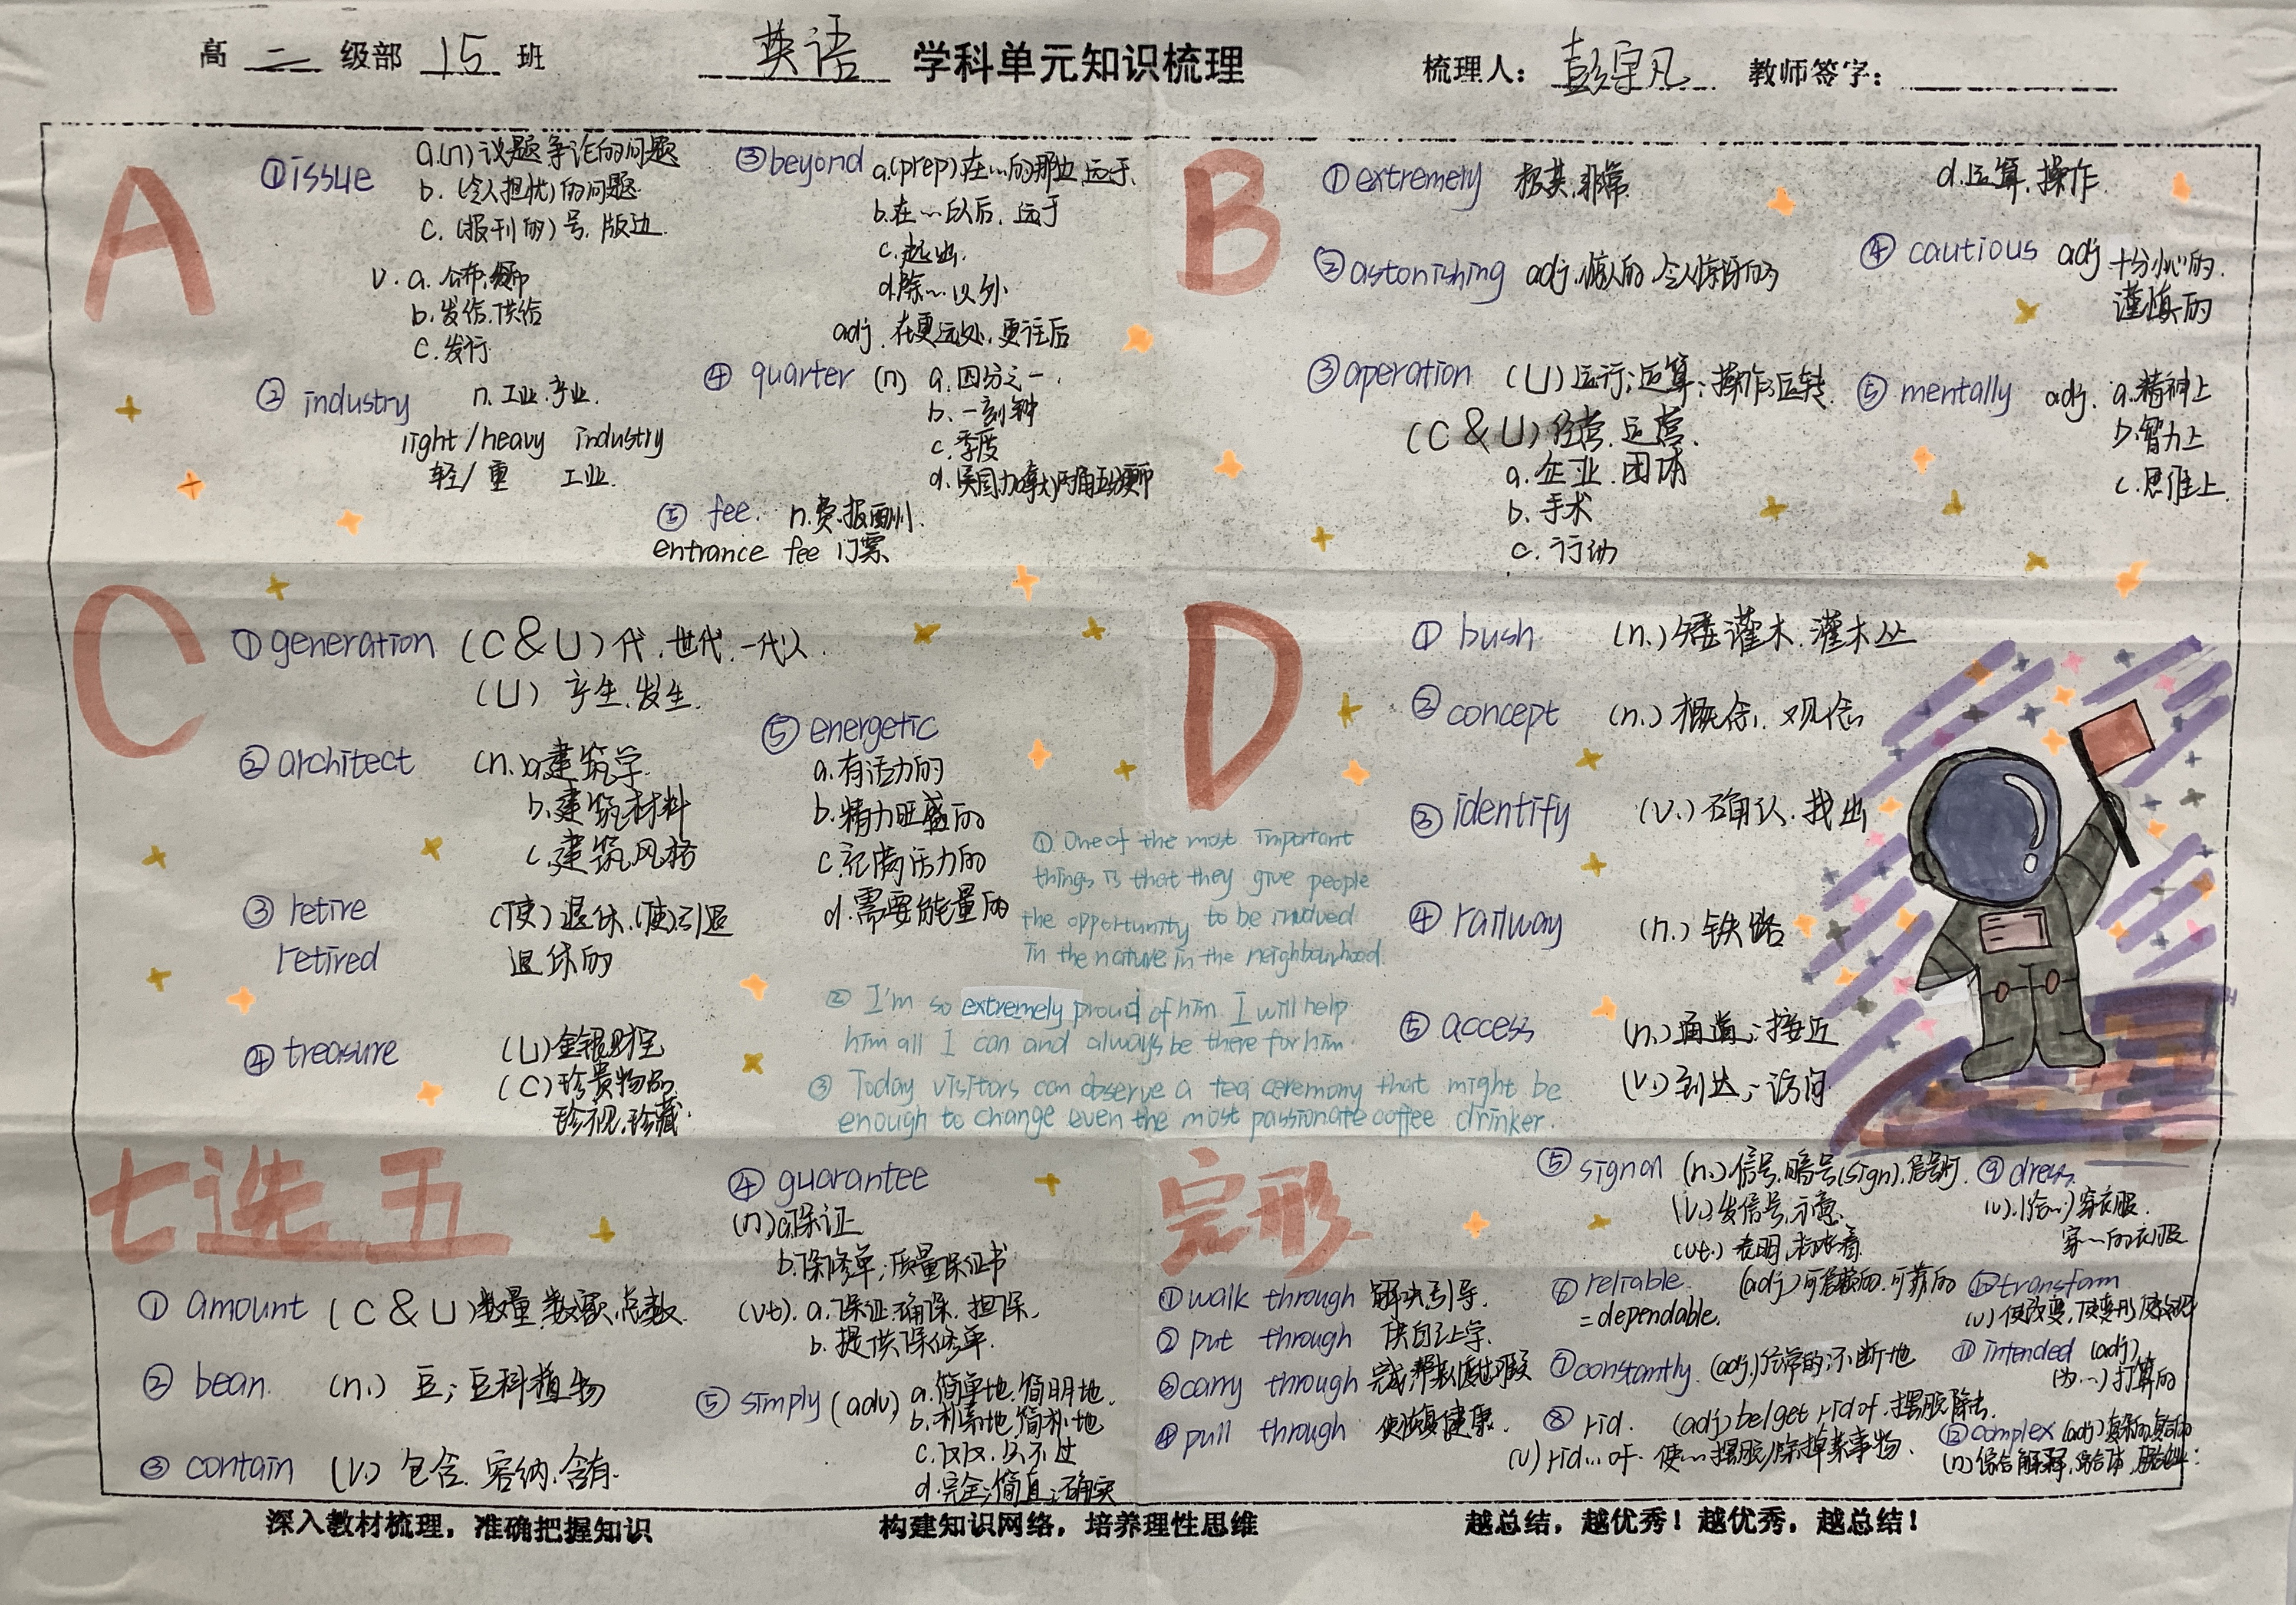 高 二 级部 15 班
英语 学科单元知识梳理
梳理人: 彭宇凡 教师签字:
A
①issue a.(n)议题争论的问题
b.(令人担忧)的问题
c.(报刊的)号,版
v. a.公布,
b.发给.供给
c.发行
② industry n.工业.产业.
light/heavy industry
轻/重 工业.
③beyond a.(prep).在…的那边,远于.
b.在…以后,远于
c.超出.
d.除…以外
adj. 在更远处,更往后
④ quarter (n) a.四分之一.
b.一刻钟
c.季度
d.
⑤ fee. n.费.报酬.
entrance fee 门票
B
①extremely 极其,非常.
②astonishing adj.惊人的.令人惊讶的
③operation (U)运行;运算;操作;运转.
(C&U)经营.运营.
a.企业.团体
b.手术
c.行动
d.运算.操作.
④ cautious adj 十分小心的.
谨慎的
⑤ mentally adj. a.精神上
b.智力上
c.思维上
C
①generation (C&U)代.世代.一代人.
(U) 产生.发生.
②architect (n.)a.建筑学.
b.建筑材料
c.建筑风格
③ retire (使)退休.(使)引退
retired 退休的
④ treasure (U)金银财宝
(C)珍贵物品
珍视.珍藏.
⑤ energetic
a.有活力的
b.精力旺盛的
c.充满活力的
d.需要能量的
① One of the most important
things is that they give people
the opportunity to be involved
in the nature in the neighbourhood.
② I'm so extremely proud of him. I will help
him all I can and always be there for him.
③ Today visitors can observe a tea ceremony that might be
enough to change even the most passionate coffee drinker.
D
① bush. (n.)矮灌木.灌木丛
② concept (n.)概念.观念
③ identify (v.)确认.找出
④ railway (n.)铁路
⑤ access (n.)通道;接近
(v.)到达;访问
七选五
① amount (C&U)数量.数额.总数.
② bean. (n.) 豆;豆科植物
③ contain (v.) 包含.容纳.含有.
④ guarantee
(n)a.保证
b.保修单;质量保证书
(vt). a.保证.确保.担保.
b.提供保修单.
⑤ simply (adv) a.简单地.简明地.
b.朴素地,简朴地
c.仅仅.只不过
d.完全;简直;确实
完形
①walk through 解决,引导.
② put through 供自己上学.
③carry through 完成
④pull through 使恢复健康.
⑤ signal (n.)信号.暗号(sign).信号灯.
(v.)发信号,示意.
(vt.) 表明,标志着.
⑥ reliable. (adj)可信赖的.可靠的
=dependable.
⑦constantly. (adj)经常的;不断地
⑧ rid. (adj)be/get rid of.摆脱.除去.
(v)rid…of. 使…摆脱/除掉某事物.
⑨ dress.
(v).(给…)穿衣服.
穿…的衣服
⑩transfam
(v)使改变,使变形,
⑪ intended (adj).
(为…)打算的
⑫complex (adj)复杂的,
(n)
深入教材梳理,准确把握知识 构建知识网络,培养理性思维 越总结,越优秀!越优秀,越总结!